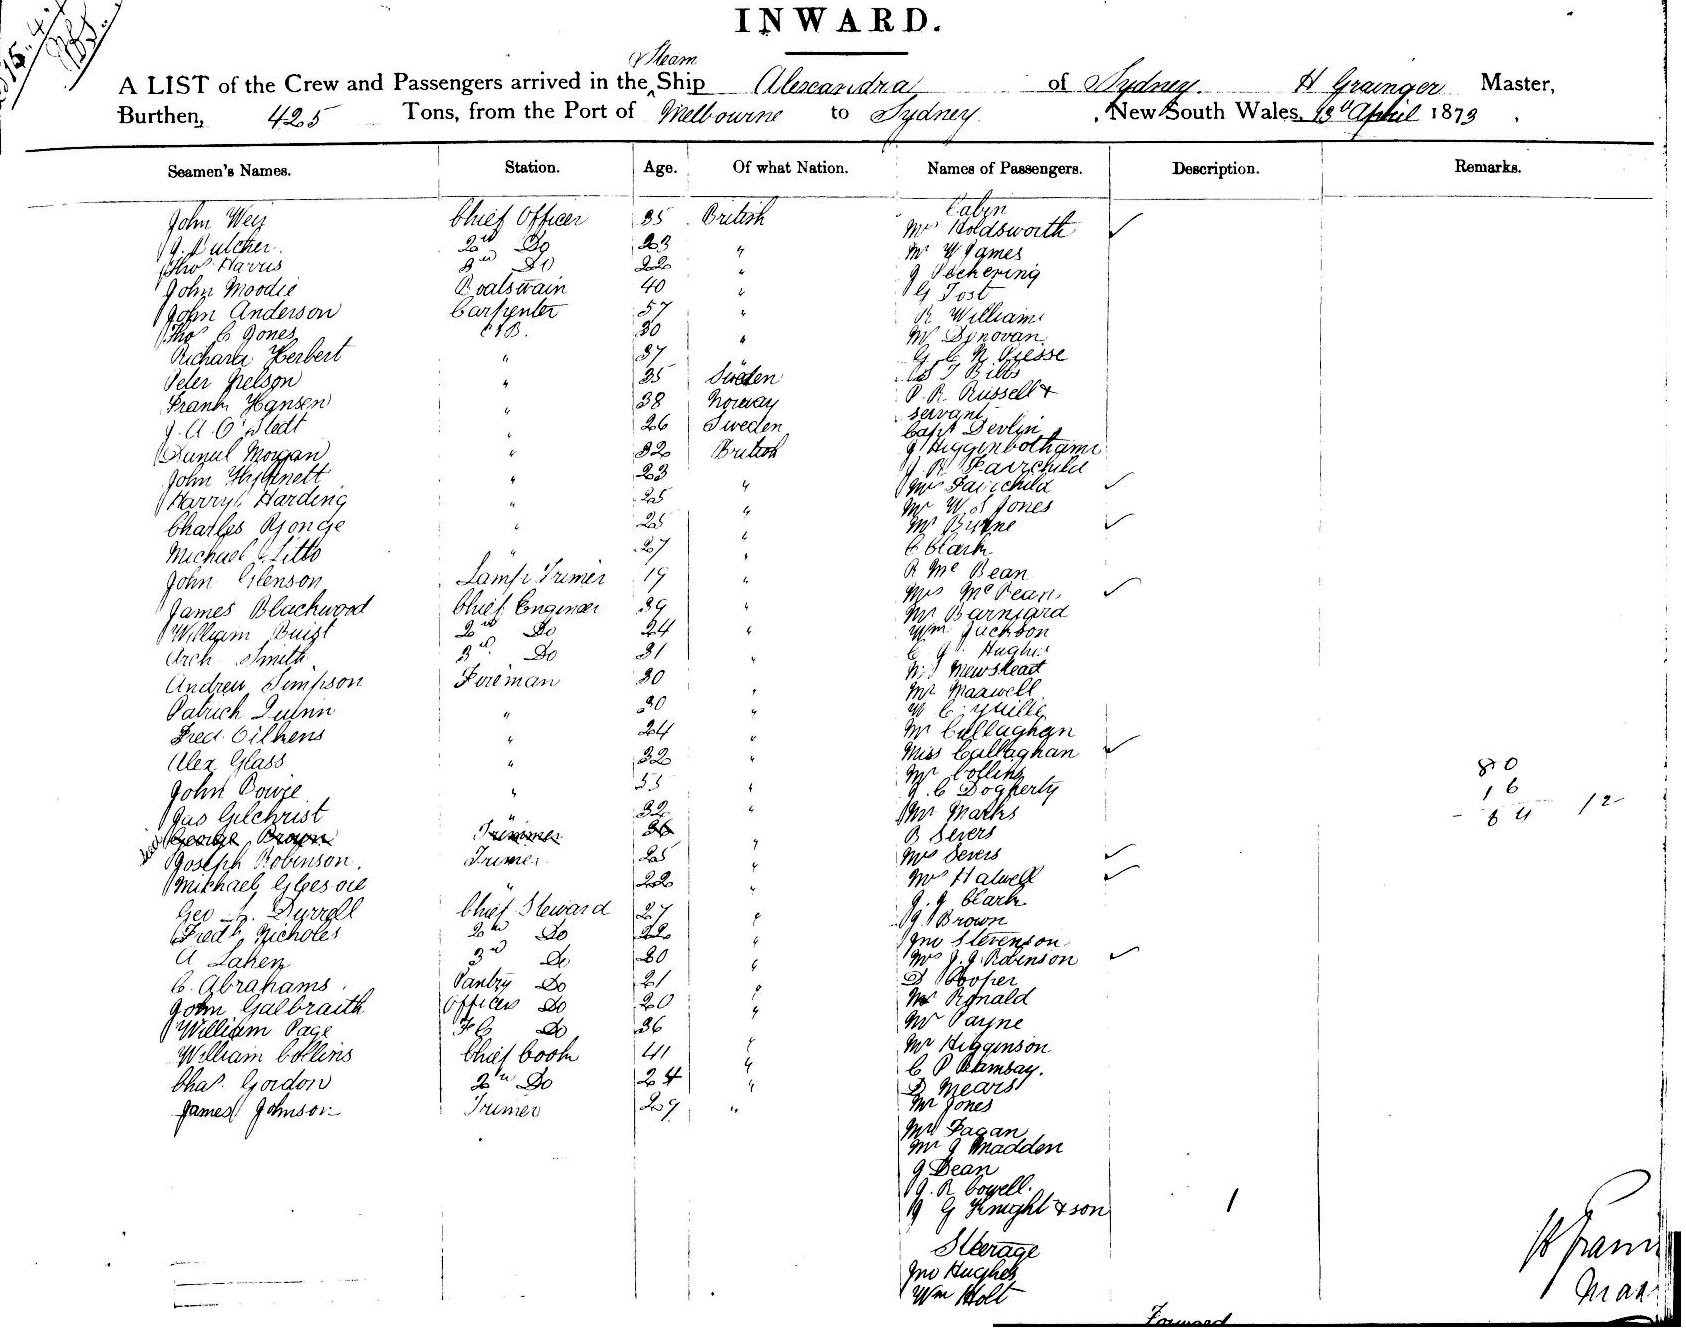 INWARD.
Steam
A LIST of the Crew and Passengers arrived in the Ship Alexandra of Sydney H Grainger Master,
Burthen, 425 Tons, from the Port of Melbourne to Sydney, New South Wales, 13th April 1873.
Seamen's Names. Station. Age. Of what Nation. Names of Passengers. Description. Remarks.
Cabin
John Weir Chief Officer 35 British Mrs Holdsworth ✓
J. Butcher 2nd Do 23 " Mr W James
Thos Harris 3rd Do 22 " J Pickering
John Moodie Boatswain 40 " G Tost
John Anderson Carpenter 57 " R Williams
Thos C Jones A.B. 30 " Mr Donovan
Richard Herbert " 37 " G. C. N. Piesse
Peter Nelson " 35 Sweden S T Bibbs
Frank Hansen " 38 Norway P. R. Russell &
servant
J. A. O'Stedt " 26 Sweden Capt Devlin
Daniel Morgan " 32 British J Higginbotham
J R Fairchild
John " 23 Mrs Fairchild ✓
Harry Harding " 25 " Mr W. S Jones
Charles " 25 " Mr Burne ✓
Michael " 27 " C Clark
John Glenson Lamp Trimer 19 " R McBean
Mrs McBean ✓
James Blackwood Chief Engineer 39 " Mr Barnjard
William Buist 2nd Do 24 " Wm Jackson
Arch Smith 3rd Do 31 " C J Hughes
Newstead
Andrew Simpson Fireman 30 " Mr Maxwell
Patrick Quinn " 30 " W C
Fred Oilkens " 24 " Mr Callaghan
Alex Glass " 32 " Miss Callaghan ✓
Mr Collins 80
John Bowie " 55 " J. C Dogherty 16
Jas Gilchrist " 32 " Mr Marks 64 12
George Brown Trimmer 36 B Severs
Joseph Robinson Trimer 25 " Mrs Severs ✓
Michael " 22 " Mrs Halwell ✓
Geo L. Durrell Chief Steward 27 " J. J Clark
J Brown
Fredk Nicholes 2nd Do 22 " Jno Stevenson
A Laken 3rd Do 30 " Mrs J. J. Robinson ✓
C. Abrahams Pantry Do 21 " D Cooper
John Galbraith Officers Do 20 " Mr Ronald
William Page F C Do 36 Mr Payne
William Collins Chief Cook 41 " Mr Higginson
C P Ramsay.
Chas. Gordon 2nd Do 24 " D Mears
James Johnson Trimer 29 " Mr Jones
Mr Fagan
Mr J Madden
J Dean
J. R Cowell.
J G Knight & son 1
Steerage
Jno Hughes
Wm Holt
Forward